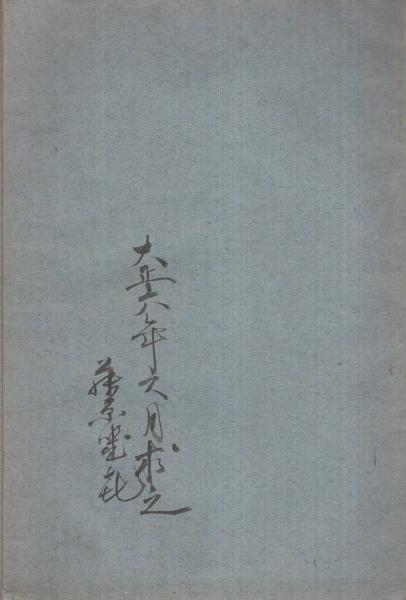 大正六年六月求之
藤原